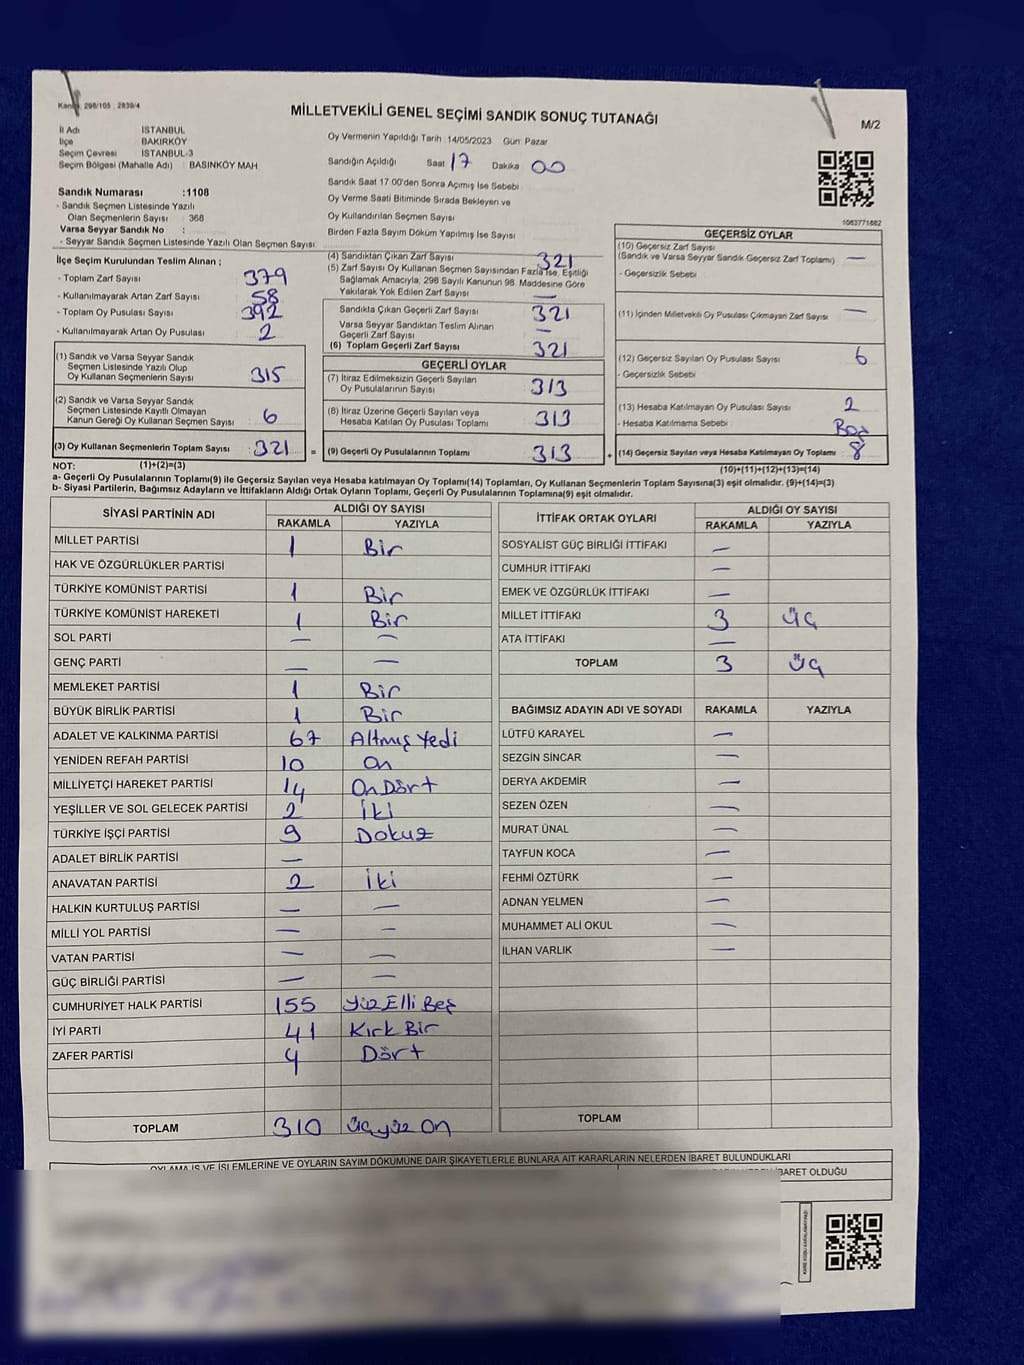 Kanun: 298/105 : 2839/4
MİLLETVEKİLİ GENEL SEÇİMİ SANDIK SONUÇ TUTANAĞI
M/2
İl Adı İSTANBUL
İlçe BAKIRKÖY
Seçim Çevresi İSTANBUL-3
Seçim Bölgesi (Mahalle Adı) : BASINKÖY MAH
Sandık Numarası :1108
- Sandık Seçmen Listesinde Yazılı
Olan Seçmenlerin Sayısı : 368
Varsa Seyyar Sandık No :
- Seyyar Sandık Seçmen Listesinde Yazılı Olan Seçmen Sayısı :
Oy Vermenin Yapıldığı Tarih : 14/05/2023 Gün: Pazar
Sandığın Açıldığı Saat 17 Dakika 00
Sandık Saat 17:00'den Sonra Açımış İse Sebebi
Oy Verme Saati Bitiminde Sırada Bekleyen ve
Oy Kullandırılan Seçmen Sayısı
Birden Fazla Sayım Döküm Yapılmış İse Sayısı
1063771682
İlçe Seçim Kurulundan Teslim Alınan ;
- Toplam Zarf Sayısı 379
- Kullanılmayarak Artan Zarf Sayısı 58
- Toplam Oy Pusulası Sayısı 392
- Kullanılmayarak Artan Oy Pusulası 2
(1) Sandık ve Varsa Seyyar Sandık
Seçmen Listesinde Yazılı Olup
Oy Kullanan Seçmenlerin Sayısı 315
(2) Sandık ve Varsa Seyyar Sandık
Seçmen Listesinde Kayıtlı Olmayan
Kanun Gereği Oy Kullanan Seçmen Sayısı 6
(3) Oy Kullanan Seçmenlerin Toplam Sayısı 321 =
(4) Sandıktan Çıkan Zarf Sayısı 321
(5) Zarf Sayısı Oy Kullanan Seçmen Sayısından Fazla İse, Eşitliği
Sağlamak Amacıyla, 298 Sayılı Kanunun 98. Maddesine Göre
Yakılarak Yok Edilen Zarf Sayısı —
Sandıkta Çıkan Geçerli Zarf Sayısı 321
Varsa Seyyar Sandıktan Teslim Alınan
Geçerli Zarf Sayısı —
(6) Toplam Geçerli Zarf Sayısı 321
GEÇERLİ OYLAR
(7) İtiraz Edilmeksizin Geçerli Sayılan
Oy Pusulalarının Sayısı 313
(8) İtiraz Üzerine Geçerli Sayılan veya
Hesaba Katılan Oy Pusulası Toplamı 313
(9) Geçerli Oy Pusulalarının Toplamı 313 +
GEÇERSİZ OYLAR
(10) Geçersiz Zarf Sayısı
(Sandık ve Varsa Seyyar Sandık Geçersiz Zarf Toplamı) —
- Geçersizlik Sebebi
(11) İçinden Milletvekili Oy Pusulası Çıkmayan Zarf Sayısı —
(12) Geçersiz Sayılan Oy Pusulası Sayısı 6
- Geçersizlik Sebebi
(13) Hesaba Katılmayan Oy Pusulası Sayısı 2
- Hesaba Katılmama Sebebi Boş
(14) Geçersiz Sayılan veya Hesaba Katılmayan Oy Toplamı 8
NOT: (1)+(2)=(3) (10)+(11)+(12)+(13)=(14)
a- Geçerli Oy Pusulalarının Toplamı(9) ile Geçersiz Sayılan veya Hesaba katılmayan Oy Toplamı(14) Toplamları, Oy Kullanan Seçmenlerin Toplam Sayısına(3) eşit olmalıdır. (9)+(14)=(3)
b- Siyasi Partilerin, Bağımsız Adayların ve İttifakların Aldığı Ortak Oyların Toplamı, Geçerli Oy Pusulalarının Toplamına(9) eşit olmalıdır.
SİYASİ PARTİNİN ADI ALDIĞI OY SAYISI
RAKAMLA YAZIYLA
MİLLET PARTİSİ 1 Bir
HAK VE ÖZGÜRLÜKLER PARTİSİ
TÜRKİYE KOMÜNİST PARTİSİ 1 Bir
TÜRKİYE KOMÜNİST HAREKETİ 1 Bir
SOL PARTİ — —
GENÇ PARTİ — —
MEMLEKET PARTİSİ 1 Bir
BÜYÜK BİRLİK PARTİSİ 1 Bir
ADALET VE KALKINMA PARTİSİ 67 Altmış Yedi
YENİDEN REFAH PARTİSİ 10 On
MİLLİYETÇİ HAREKET PARTİSİ 14 On Dört
YEŞİLLER VE SOL GELECEK PARTİSİ 2 İki
TÜRKİYE İŞÇİ PARTİSİ 9 Dokuz
ADALET BİRLİK PARTİSİ —
ANAVATAN PARTİSİ 2 İki
HALKIN KURTULUŞ PARTİSİ — —
MİLLİ YOL PARTİSİ — —
VATAN PARTİSİ — —
GÜÇ BİRLİĞİ PARTİSİ — —
CUMHURİYET HALK PARTİSİ 155 Yüz Elli Beş
İYİ PARTİ 41 Kırk Bir
ZAFER PARTİSİ 4 Dört
TOPLAM 310 Üçyüz On
İTTİFAK ORTAK OYLARI ALDIĞI OY SAYISI
RAKAMLA YAZIYLA
SOSYALİST GÜÇ BİRLİĞİ İTTİFAKI —
CUMHUR İTTİFAKI —
EMEK VE ÖZGÜRLÜK İTTİFAKI —
MİLLET İTTİFAKI 3 Üç
ATA İTTİFAKI —
TOPLAM 3 Üç
BAĞIMSIZ ADAYIN ADI VE SOYADI RAKAMLA YAZIYLA
LÜTFÜ KARAYEL —
SEZGİN SİNCAR —
DERYA AKDEMİR —
SEZEN ÖZEN —
MURAT ÜNAL —
TAYFUN KOCA —
FEHMİ ÖZTÜRK —
ADNAN YELMEN —
MUHAMMET ALİ OKUL —
İLHAN VARLIK —
TOPLAM
OYLAMA İŞ VE İŞLEMLERİNE VE OYLARIN SAYIM DÖKÜMÜNE DAİR ŞİKAYETLERLE BUNLARA AİT KARARLARIN NELERDEN İBARET BULUNDUKLARI
İBARET OLDUĞU